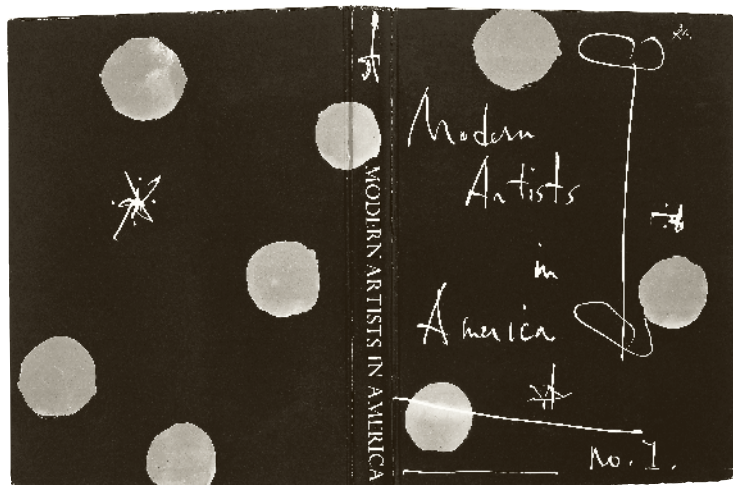 MODERN ARTISTS IN AMERICA
Modern
Artists
in
America
No. 1.